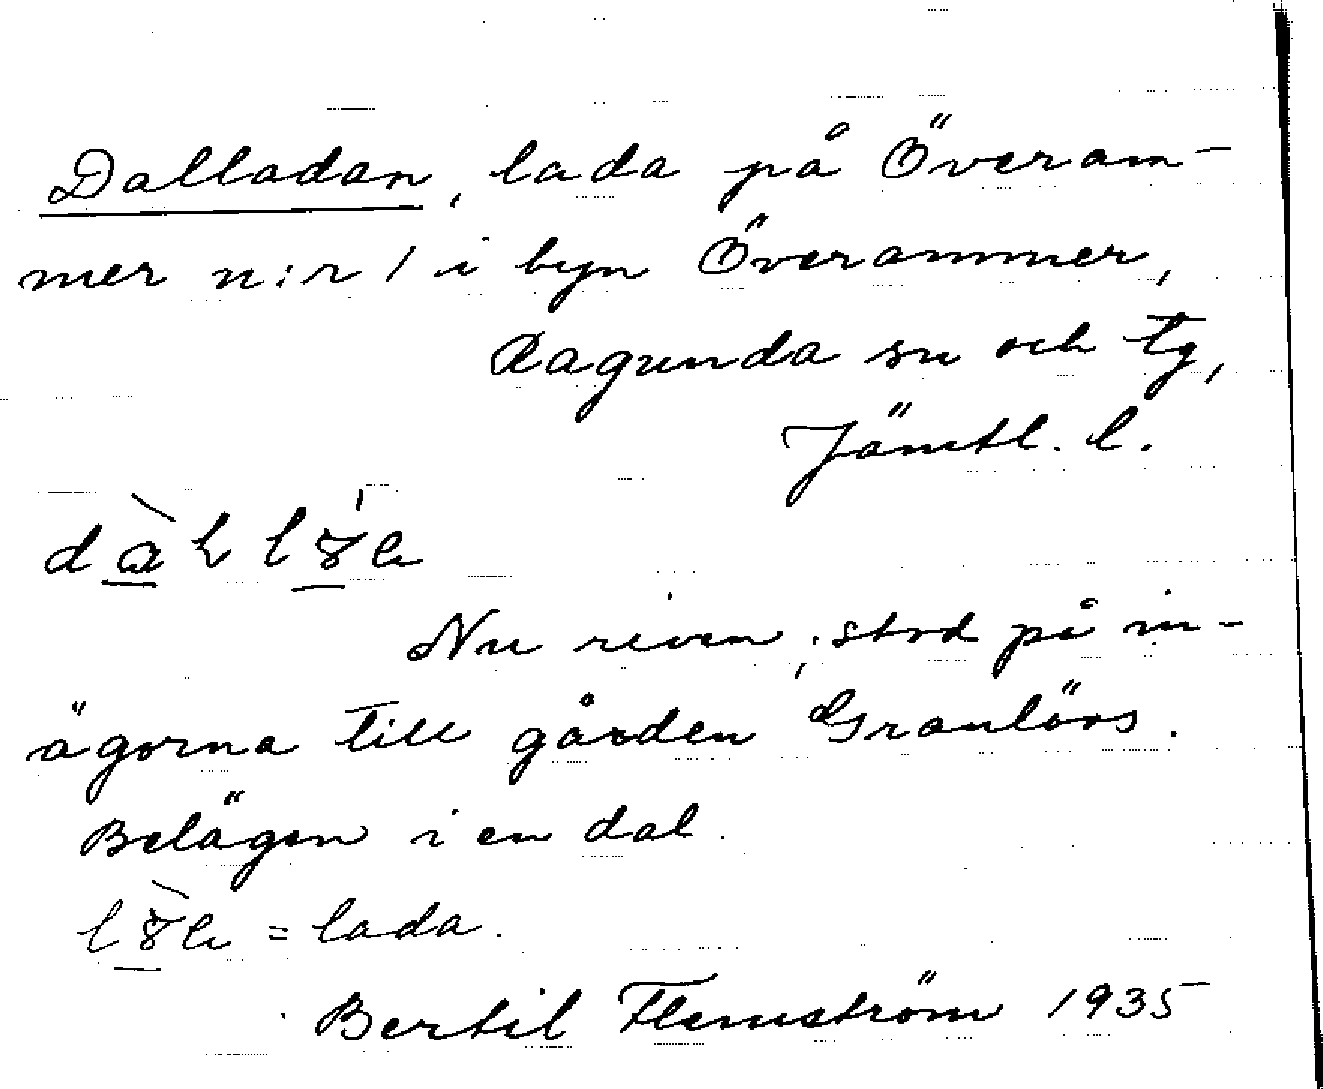 Dalladan, lada på Överam-
mer n:r 1 i byn Överammer,
Ragunda sn och tg,
Jämtl. l.
Nu riven, stod på in-
ägorna till gården Granlövs.
Belägen i en dal.
= lada.
Bertil Flemström 1935